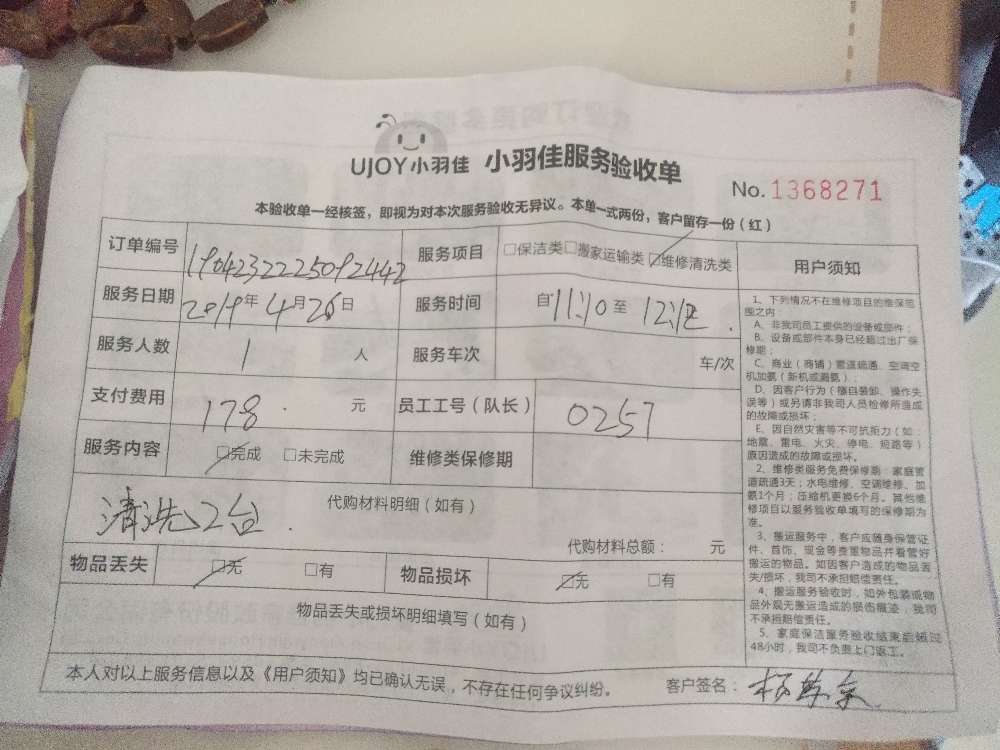 UJOY小羽佳 小羽佳服务验收单
No. 1368271
本验收单一经核签，即视为对本次服务验收无异议。本单一式两份，客户留存一份（红）
订单编号 190423222509 2442 服务项目 □保洁类□搬家运输类☑维修清洗类 用户须知
服务日期 2019年4月26日 服务时间 自11:10至
服务人数 1 人 服务车次 车/次
支付费用 178. 元 员工工号（队长） 0257
服务内容 ☑完成 □未完成 维修类保修期
代购材料明细（如有）
清洗2台.
代购材料总额： 元
物品丢失 ☑无 □有 物品损坏 ☑无 □有
物品丢失或损坏明细填写（如有）
本人对以上服务信息以及《用户须知》均已确认无误，不存在任何争议纠纷。 客户签名：
1、下列情况不在维修项目的维保范
围之内：
A、非我司员工提供的设备或部件；
B、设备或部件本身已经超过出厂保
修期；
C、商业（商铺）管道疏通、空调空
机加氨（新机或漏氨）；
D、因客户行为（擅自装卸、操作失
误等）或另请非我司人员检修所造成
的故障或损坏；
E、因自然灾害等不可抗拒力（如：
地震、雷电、火灾、停电、短路等）
原因造成的故障或损坏。
2、维修类服务免费保修期：家庭管
道疏通3天；水电维修、空调维修、加
氨1个月；压缩机更换6个月。其他维
修项目以服务验收单填写的保修期为
准。
3、搬运服务中，客户应随身保管证
件、首饰、现金等贵重物品并看管好
搬运的物品。如因客户造成的物品丢
失/损坏，我司不承担赔偿责任。
4、搬运服务验收时，如外包装或物
品外观无搬运造成的损伤痕迹，我司
不承担赔偿责任。
5、家庭保洁服务验收结束后超过
48小时，我司不负责上门返工。